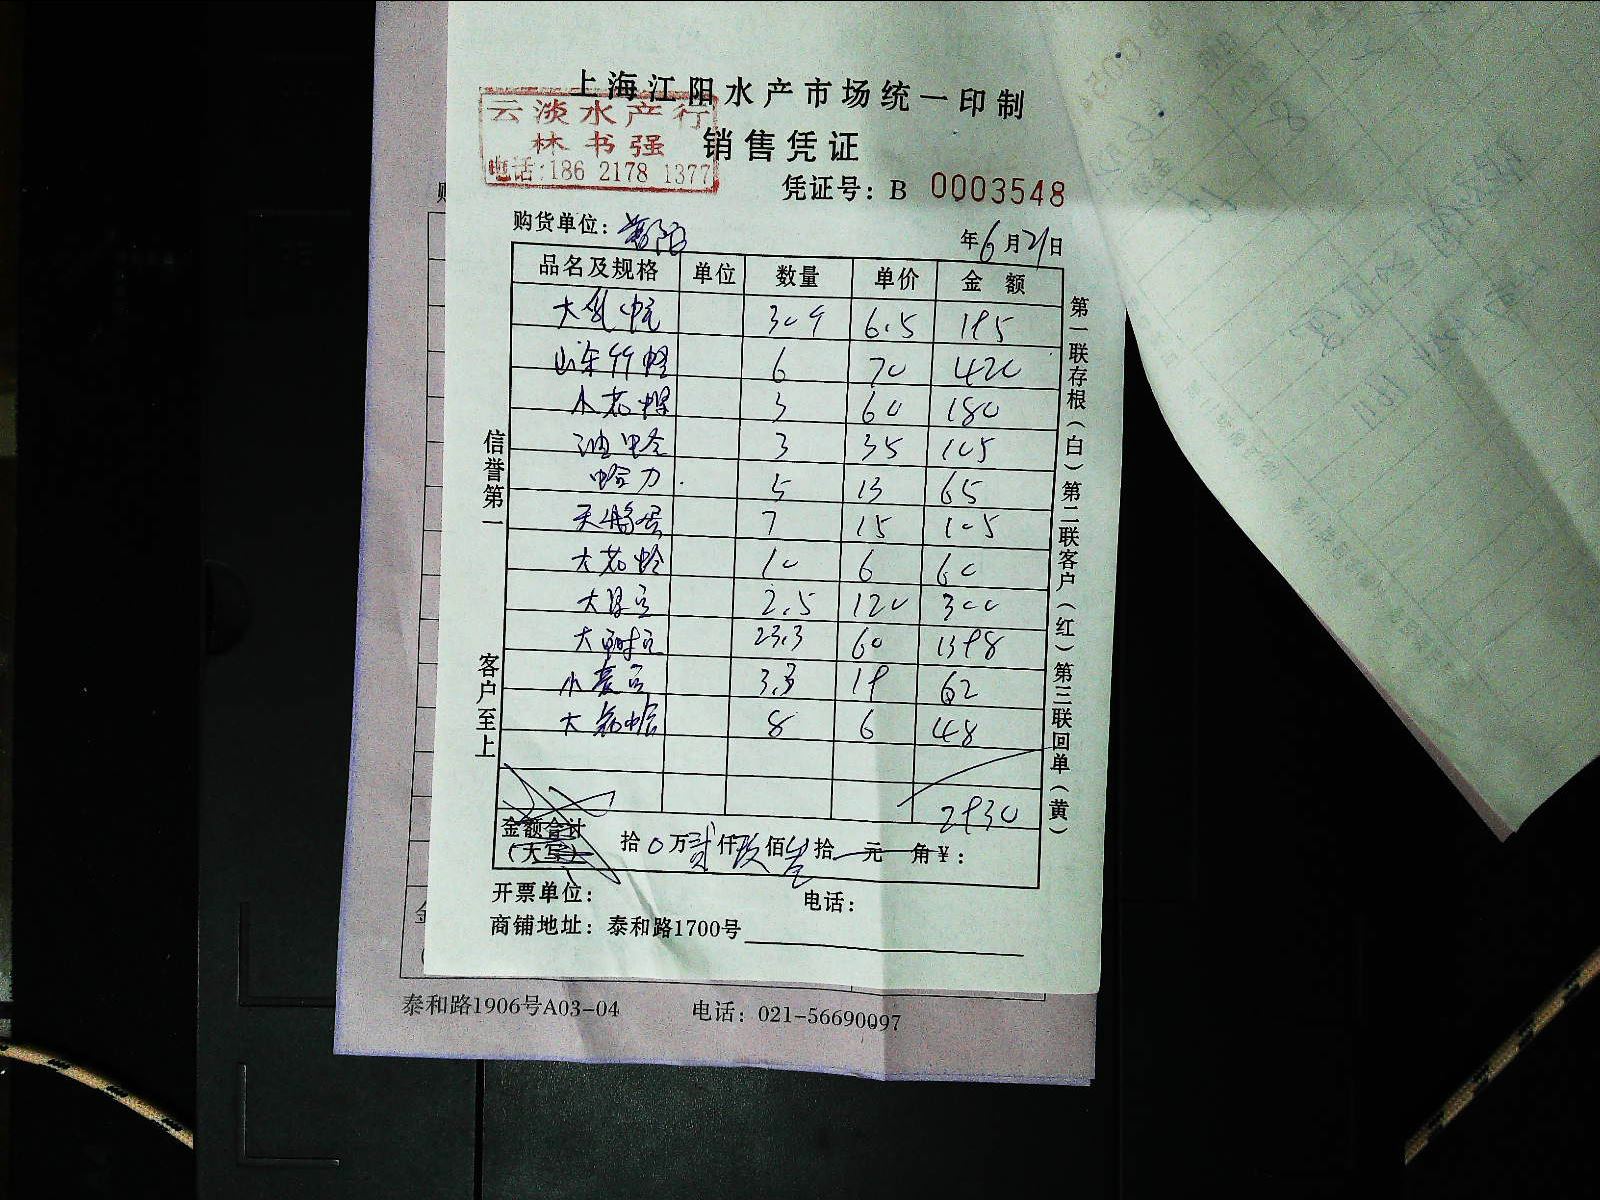 上海江阳水产市场统一印制
云淡水产行
林书强
电话:186 2178 1377
销售凭证
凭证号: B 0003548
购货单位:
年6月21日
品名及规格 单位 数量 单价 金额
大 309 6.5 195
山东竹蛏 6 70 420
小花螺 3 60 180
油蛤 3 35 105
蛤力 5 13 65
天鹅蛋 7 15 105
大花蛤 10 6 60
大 2.5 120 300
大 23.3 60 1398
小 3.3 19 62
大 8 6 48
2930
金额合计
(大写)
拾0万贰仟玖佰叁拾 元 角¥:
开票单位: 电话:
商铺地址: 泰和路1700号
信誉第一
客户至上
第一联存根(白)第二联客户(红)第三联回单(黄)
泰和路1906号A03-04 电话: 021-56690097